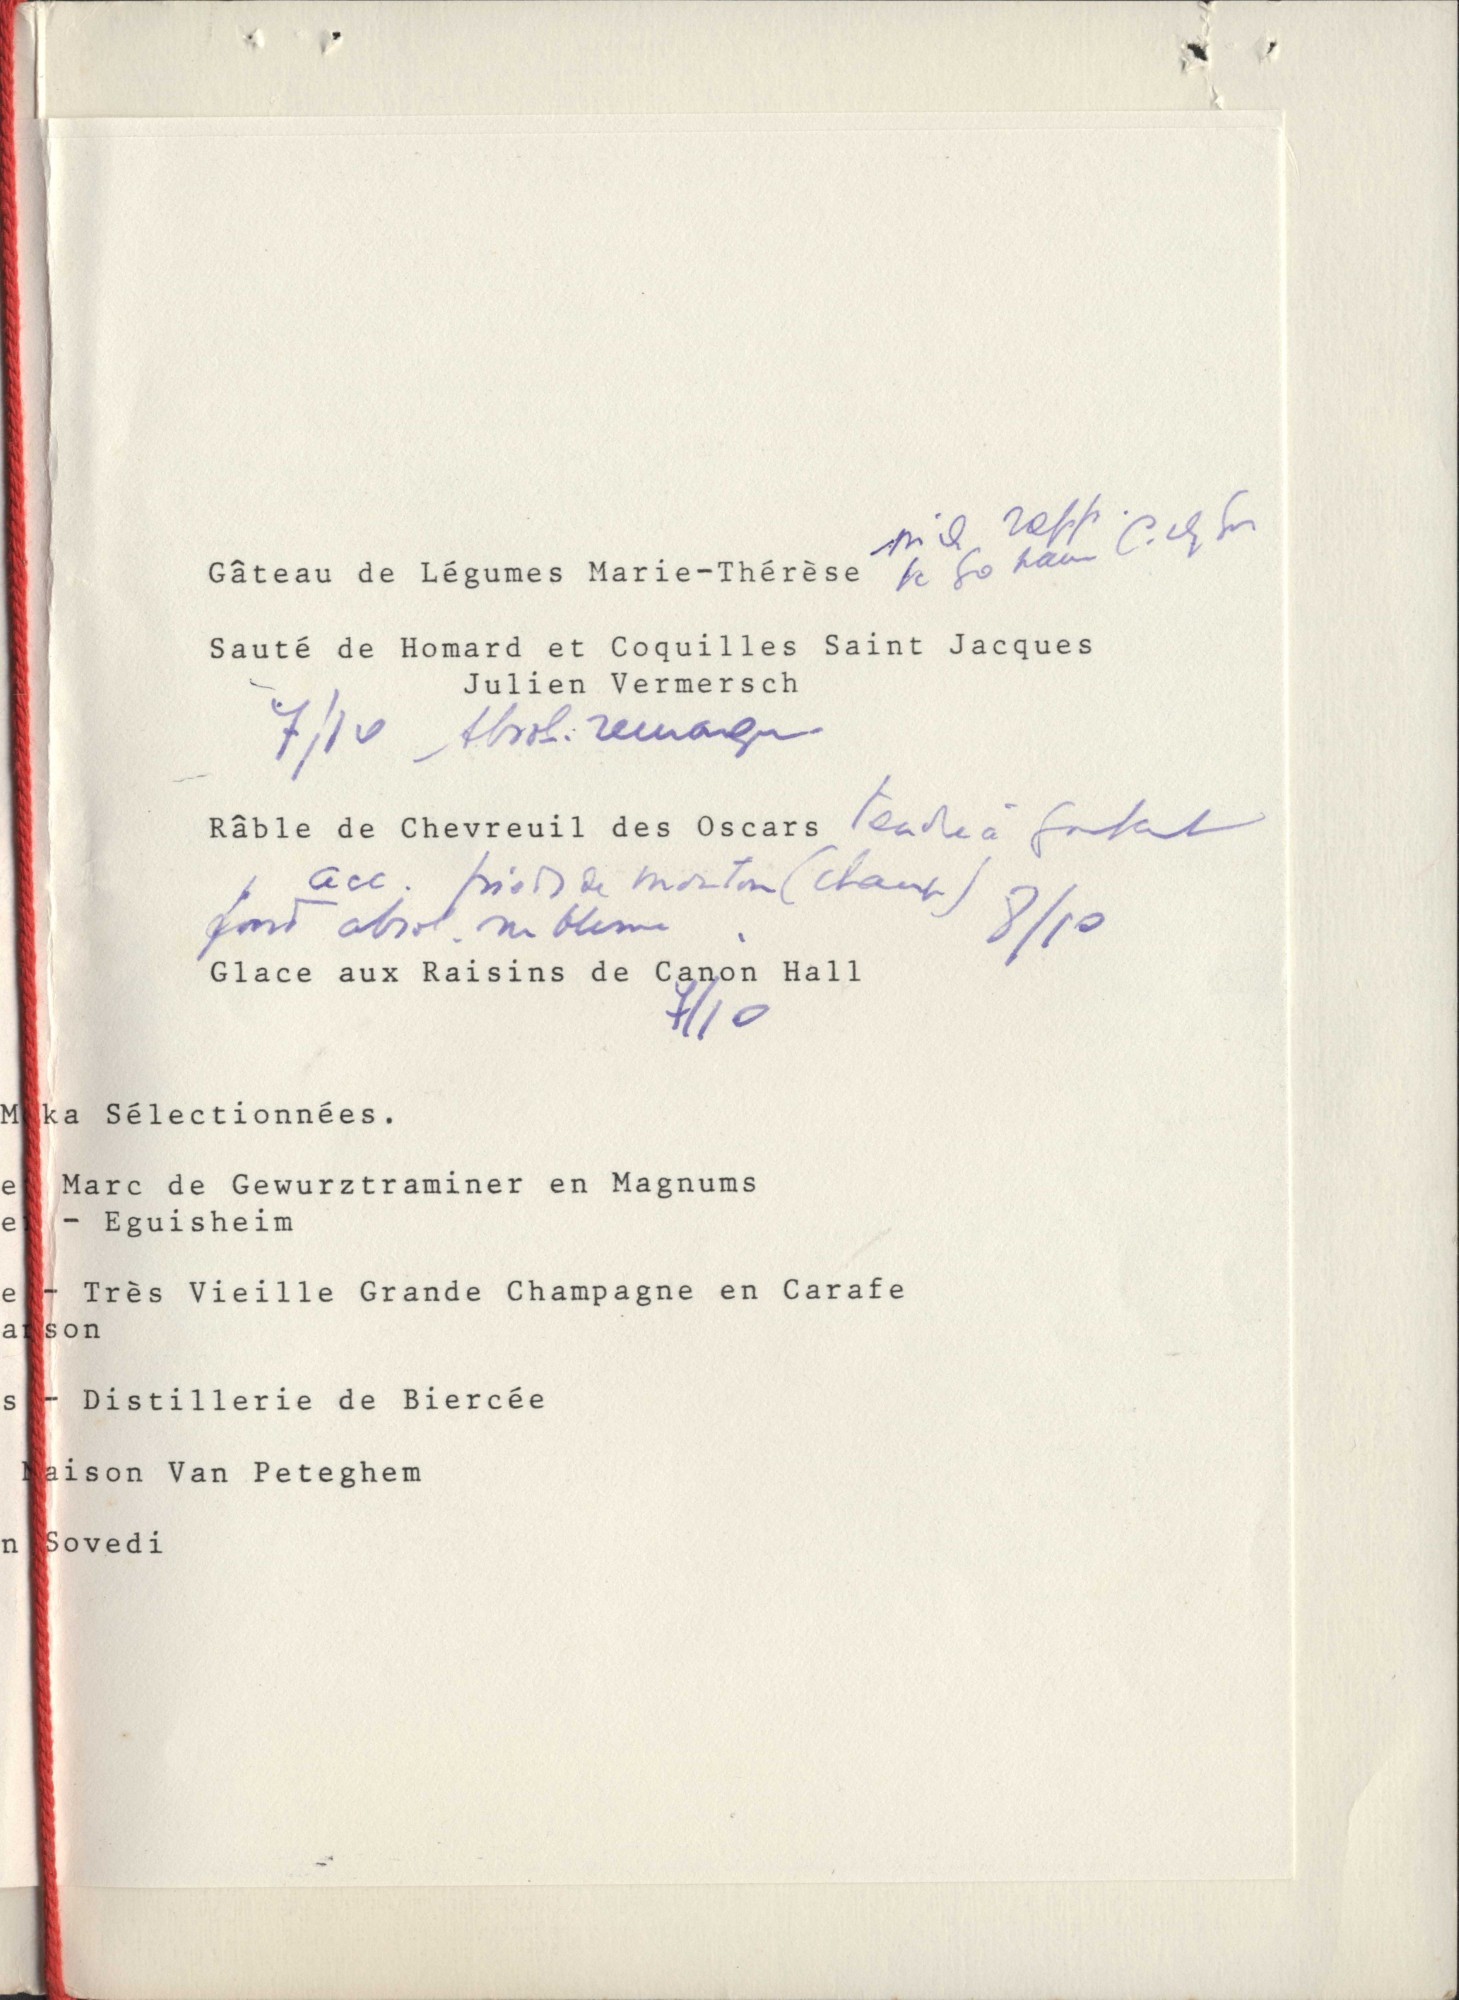 Gâteau de Légumes Marie-Thérèse
Sauté de Homard et Coquilles Saint Jacques
Julien Vermersch
7/10 absol. remarqu
Râble de Chevreuil des Oscars tendre à
acc. pieds de mouton (champ)
fond absol. sublime 8/10
Glace aux Raisins de Canon Hall
7/10
Moka Sélectionnées.
Marc de Gewurztraminer en Magnums
- Eguisheim
e - Très Vieille Grande Champagne en Carafe
anson
s - Distillerie de Biercée
Maison Van Peteghem
n Sovedi